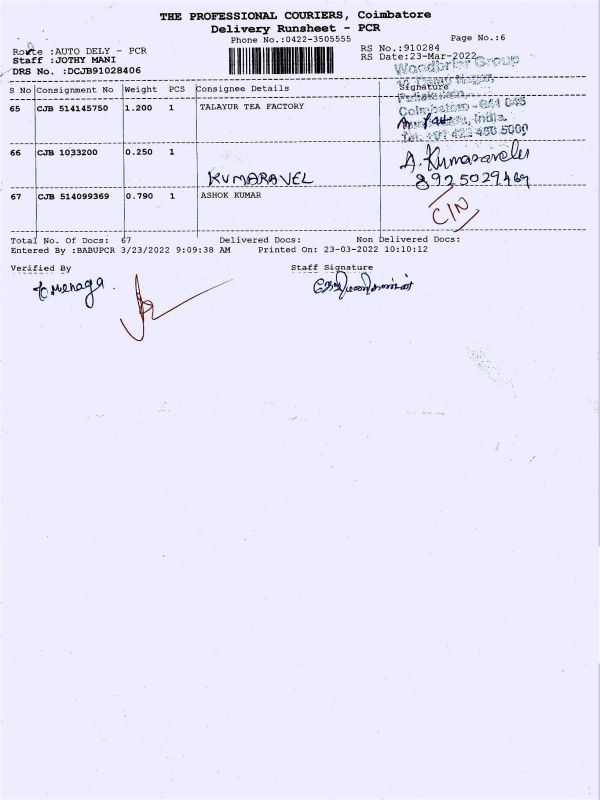 THE PROFESSIONAL COURIERS, Coimbatore
Delivery Runsheet - PCR
Phone No.:0422-3505555
Page No.:6
Route :AUTO DELY - PCR
RS No.:910284
Staff :JOTHY MANI
RS Date:23-Mar-2022
DRS No. :DCJB91028406
Woodbriar Group
S No Consignment No Weight PCS Consignee Details Signature
65 CJB 514145750 1.200 1 TALAYUR TEA FACTORY
Coimbatore - 641 045
India.
Tel: +91 422 450 5000
66 CJB 1033200 0.250 1
A. Kumaravelu
KUMARAVEL
8925029469
67 CJB 514099369 0.790 1 ASHOK KUMAR
C/N
Total No. Of Docs: 67 Delivered Docs: Non Delivered Docs:
Entered By :BABUPCR 3/23/2022 9:09:38 AM Printed On: 23-03-2022 10:10:12
Verified By Staff Signature
Menaga